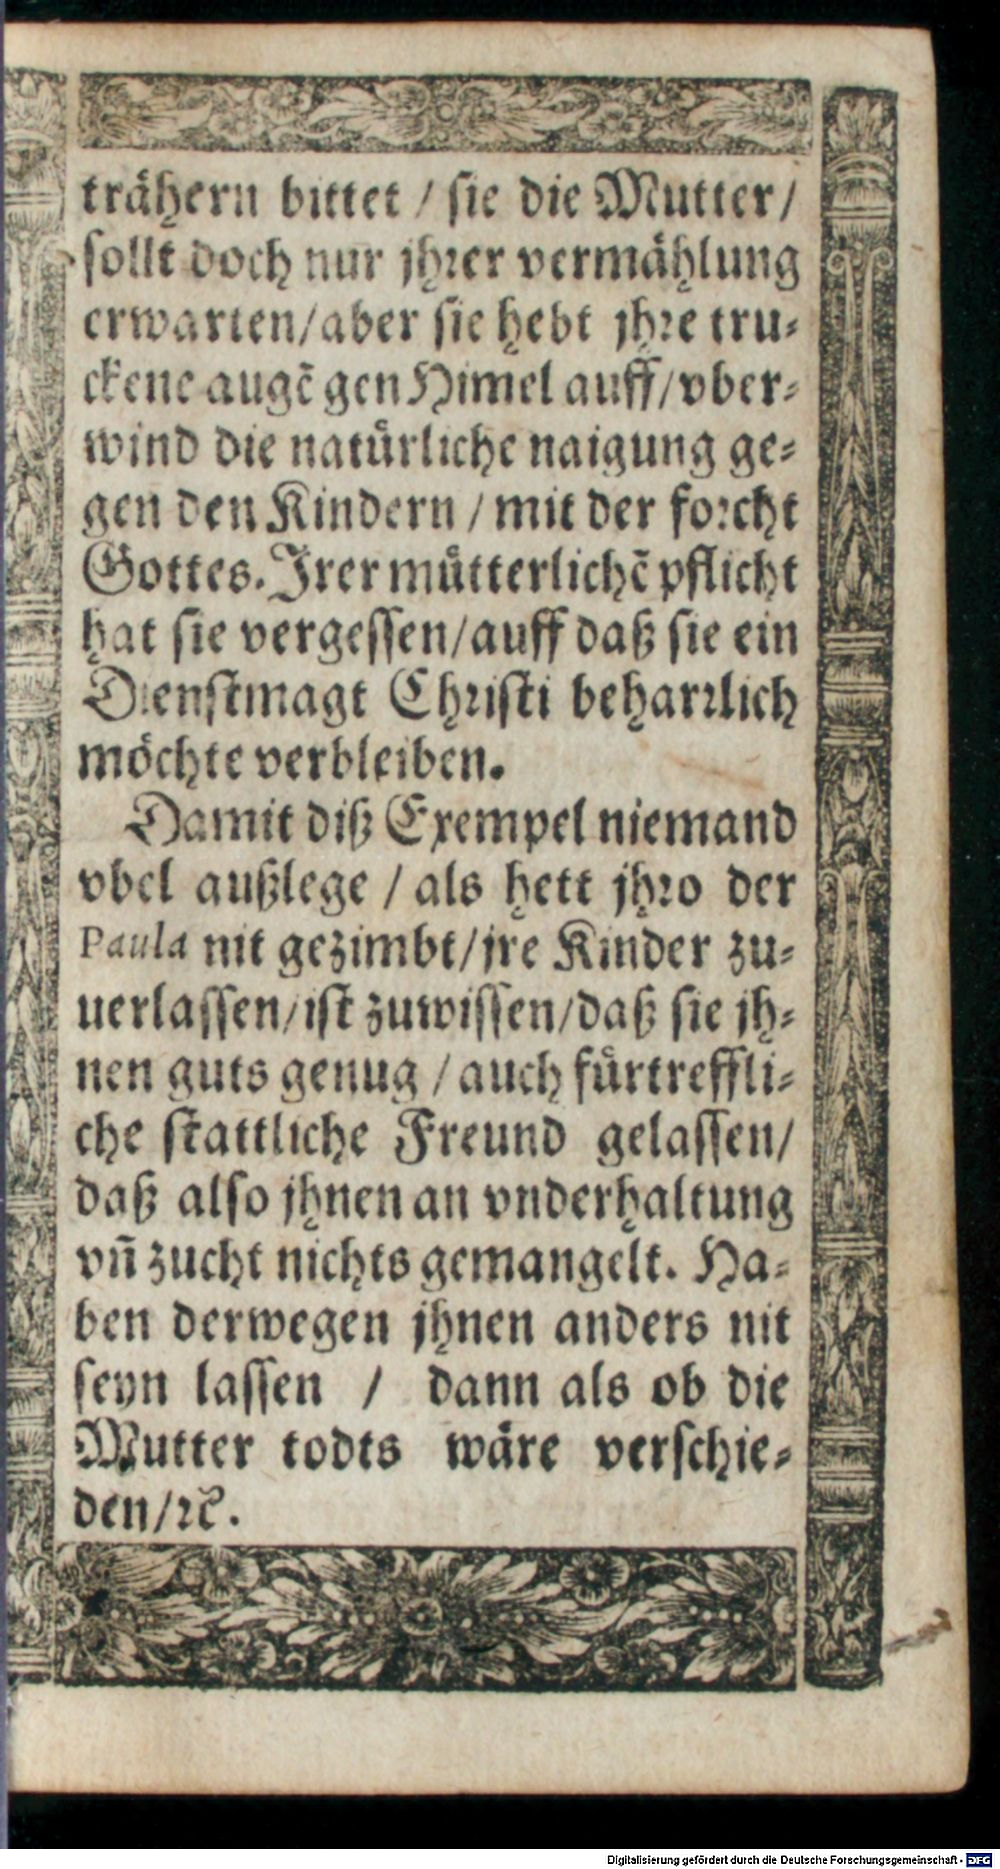 trähern bittet / sie die Mutter/
sollt doch nur jhrer vermählung
erwarten/aber sie hebt jhre tru-
ckene augẽ gen Himel auff/vber-
wind die natürliche naigung ge-
gen den Kindern / mit der forcht
Gottes. Irer mütterlichẽ pflicht
hat sie vergessen/auff daß sie ein
Dienstmagt Christi beharrlich
möchte verbleiben.
Damit diß Exempel niemand
vbel außlege / als hett jhro der
Paula nit gezimbt/jre Kinder zu-
uerlassen/ist zuwissen/daß sie jh-
nen guts genug / auch fürtreffli-
che stattliche Freund gelassen/
daß also jhnen an vnderhaltung
vñ zucht nichts gemangelt. Ha-
ben derwegen jhnen anders nit
seyn lassen / dann als ob die
Mutter todts wäre verschie-
den/ꝛc̃.
Digitalisierung gefördert durch die Deutsche Forschungsgemeinschaft - DFG